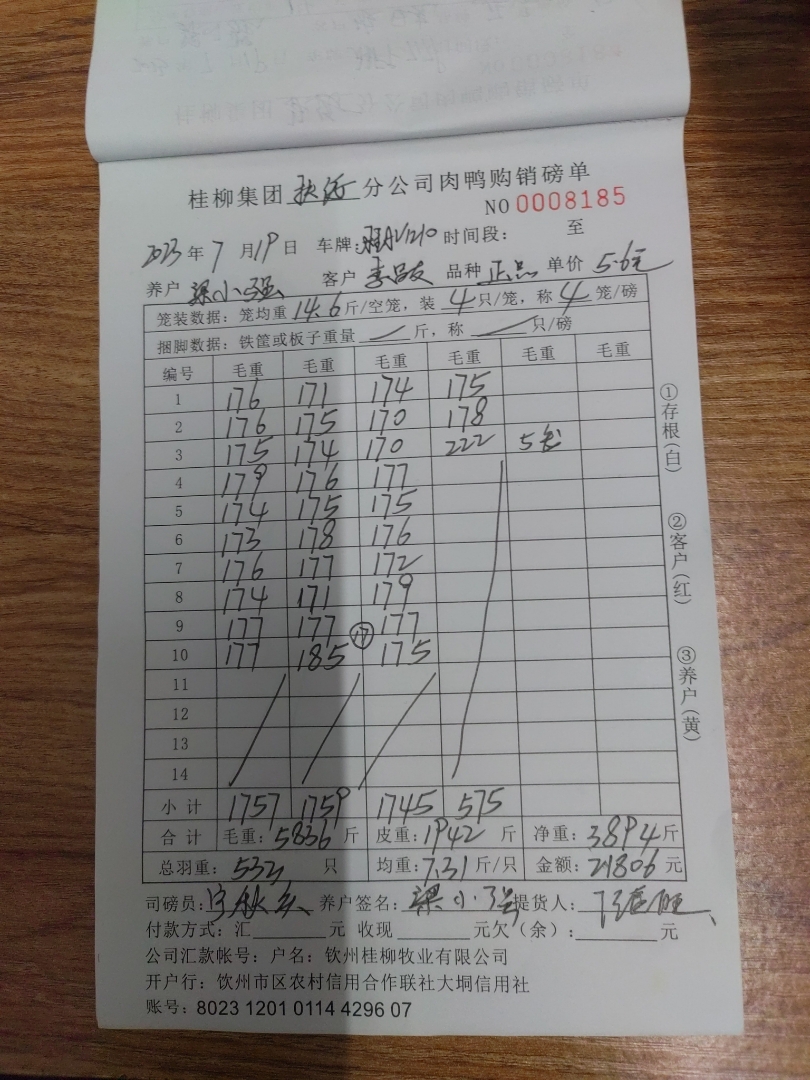 桂柳集团 分公司肉鸭购销磅单
NO 0008185
2023 年 7 月 19 日 车牌: 时间段: 至
养户 梁小强 客户 李昌友 品种 正品 单价 5.6元
笼装数据：笼均重 14.6 斤/空笼，装 4 只/笼，称 4 笼/磅
捆脚数据：铁筐或板子重量 斤，称 只/磅
编号 毛重 毛重 毛重 毛重 毛重 毛重
1 176 171 174 175
2 176 175 170 178
3 175 174 170 222 5
4 179 176 177
5 174 175 175
6 173 178 176
7 176 177 172
8 174 171 179
9 177 177 ⑰ 177
10 177 185 175
11
12
13
14
小计 1757 1759 1745 575
合计 毛重: 5836 斤 皮重: 1942 斤 净重: 3894 斤
总羽重: 只 均重: 7.31 斤/只 金额: 21806 元
司磅员: 养户签名: 梁小强 提货人:
付款方式：汇 元 收现 元欠（余）: 元
公司汇款帐号：户名：钦州桂柳牧业有限公司
开户行：钦州市区农村信用合作联社大垌信用社
账号：8023 1201 0114 4296 07
①存根(白)
②客户(红)
③养户(黄)